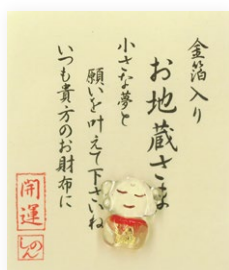 金箔入り
お地蔵さま
小さな夢と
願いを叶えて下さいね
いつも貴方のお財布に
開運
しのん